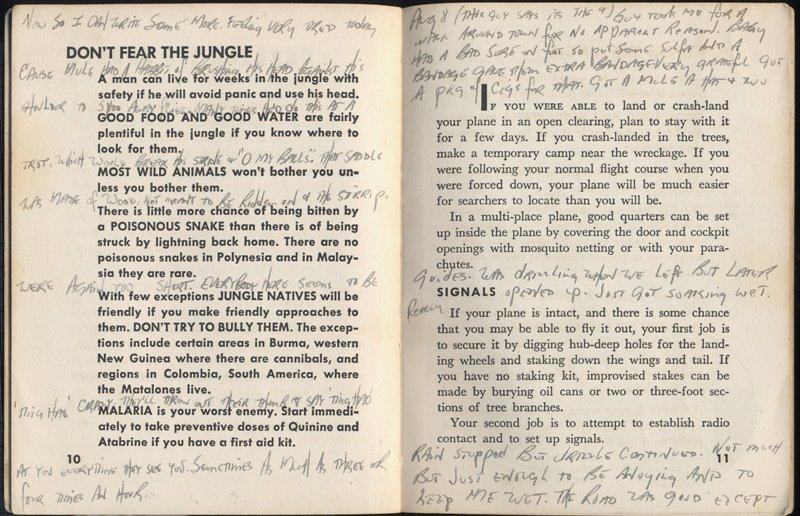 Now so I can write some more. Feeling very tired today
DON'T FEAR THE JUNGLE
cause mule had a habit of brushing his head against his
A man can live for weeks in the jungle with
safety if he will avoid panic and use his head.
shoulder to shoo away flies. Many times had do this at a
GOOD FOOD AND GOOD WATER are fairly
plentiful in the jungle if you know where to
look for them.
trot, which would break his stride & "O my balls". That saddle
MOST WILD ANIMALS won't bother you un-
less you bother them.
was made of wood, not meant to be ridden on & the stirrips
There is little more chance of being bitten by
a POISONOUS SNAKE than there is of being
struck by lightning back home. There are no
poisonous snakes in Polynesia and in Malay-
sia they are rare.
were again too short. Everybody here seems to be
With few exceptions JUNGLE NATIVES will be
friendly if you make friendly approaches to
them. DON'T TRY TO BULLY THEM. The excep-
tions include certain areas in Burma, western
New Guinea where there are cannibals, and
regions in Colombia, South America, where
the Matalones live.
'Ting Hao' crazy. They'll throw out their thumb & say 'Ting Hao'
MALARIA is your worst enemy. Start immedi-
ately to take preventive doses of Quinine and
Atabrine if you have a first aid kit.
10
at you everytime they see you. Sometimes as much as three or
four times an hour.
Aug 8 (this guy says its the 9) Guy took me for a
walk around town for no apparent reason. Baby
had a bad sore on foot so put some sulfa and a
bandage gave them extra bandage very grateful got
a pkg of cigs for that. Got a mule a hat & two
IF YOU WERE ABLE to land or crash-land
your plane in an open clearing, plan to stay with it
for a few days. If you crash-landed in the trees,
make a temporary camp near the wreckage. If you
were following your normal flight course when you
were forced down, your plane will be much easier
for searchers to locate than you will be.
In a multi-place plane, good quarters can be set
up inside the plane by covering the door and cockpit
openings with mosquito netting or with your para-
chutes.
guides. Was drizzling when we left but later
SIGNALS
really opened up. Just got soaking wet.
If your plane is intact, and there is some chance
that you may be able to fly it out, your first job is
to secure it by digging hub-deep holes for the land-
ing wheels and staking down the wings and tail. If
you have no staking kit, improvised stakes can be
made by burying oil cans or two or three-foot sec-
tions of tree branches.
Your second job is to attempt to establish radio
contact and to set up signals.
Rain stopped but drizzle continued. Not much
11
but just enough to be anoying and to
keep me wet. The road was good except